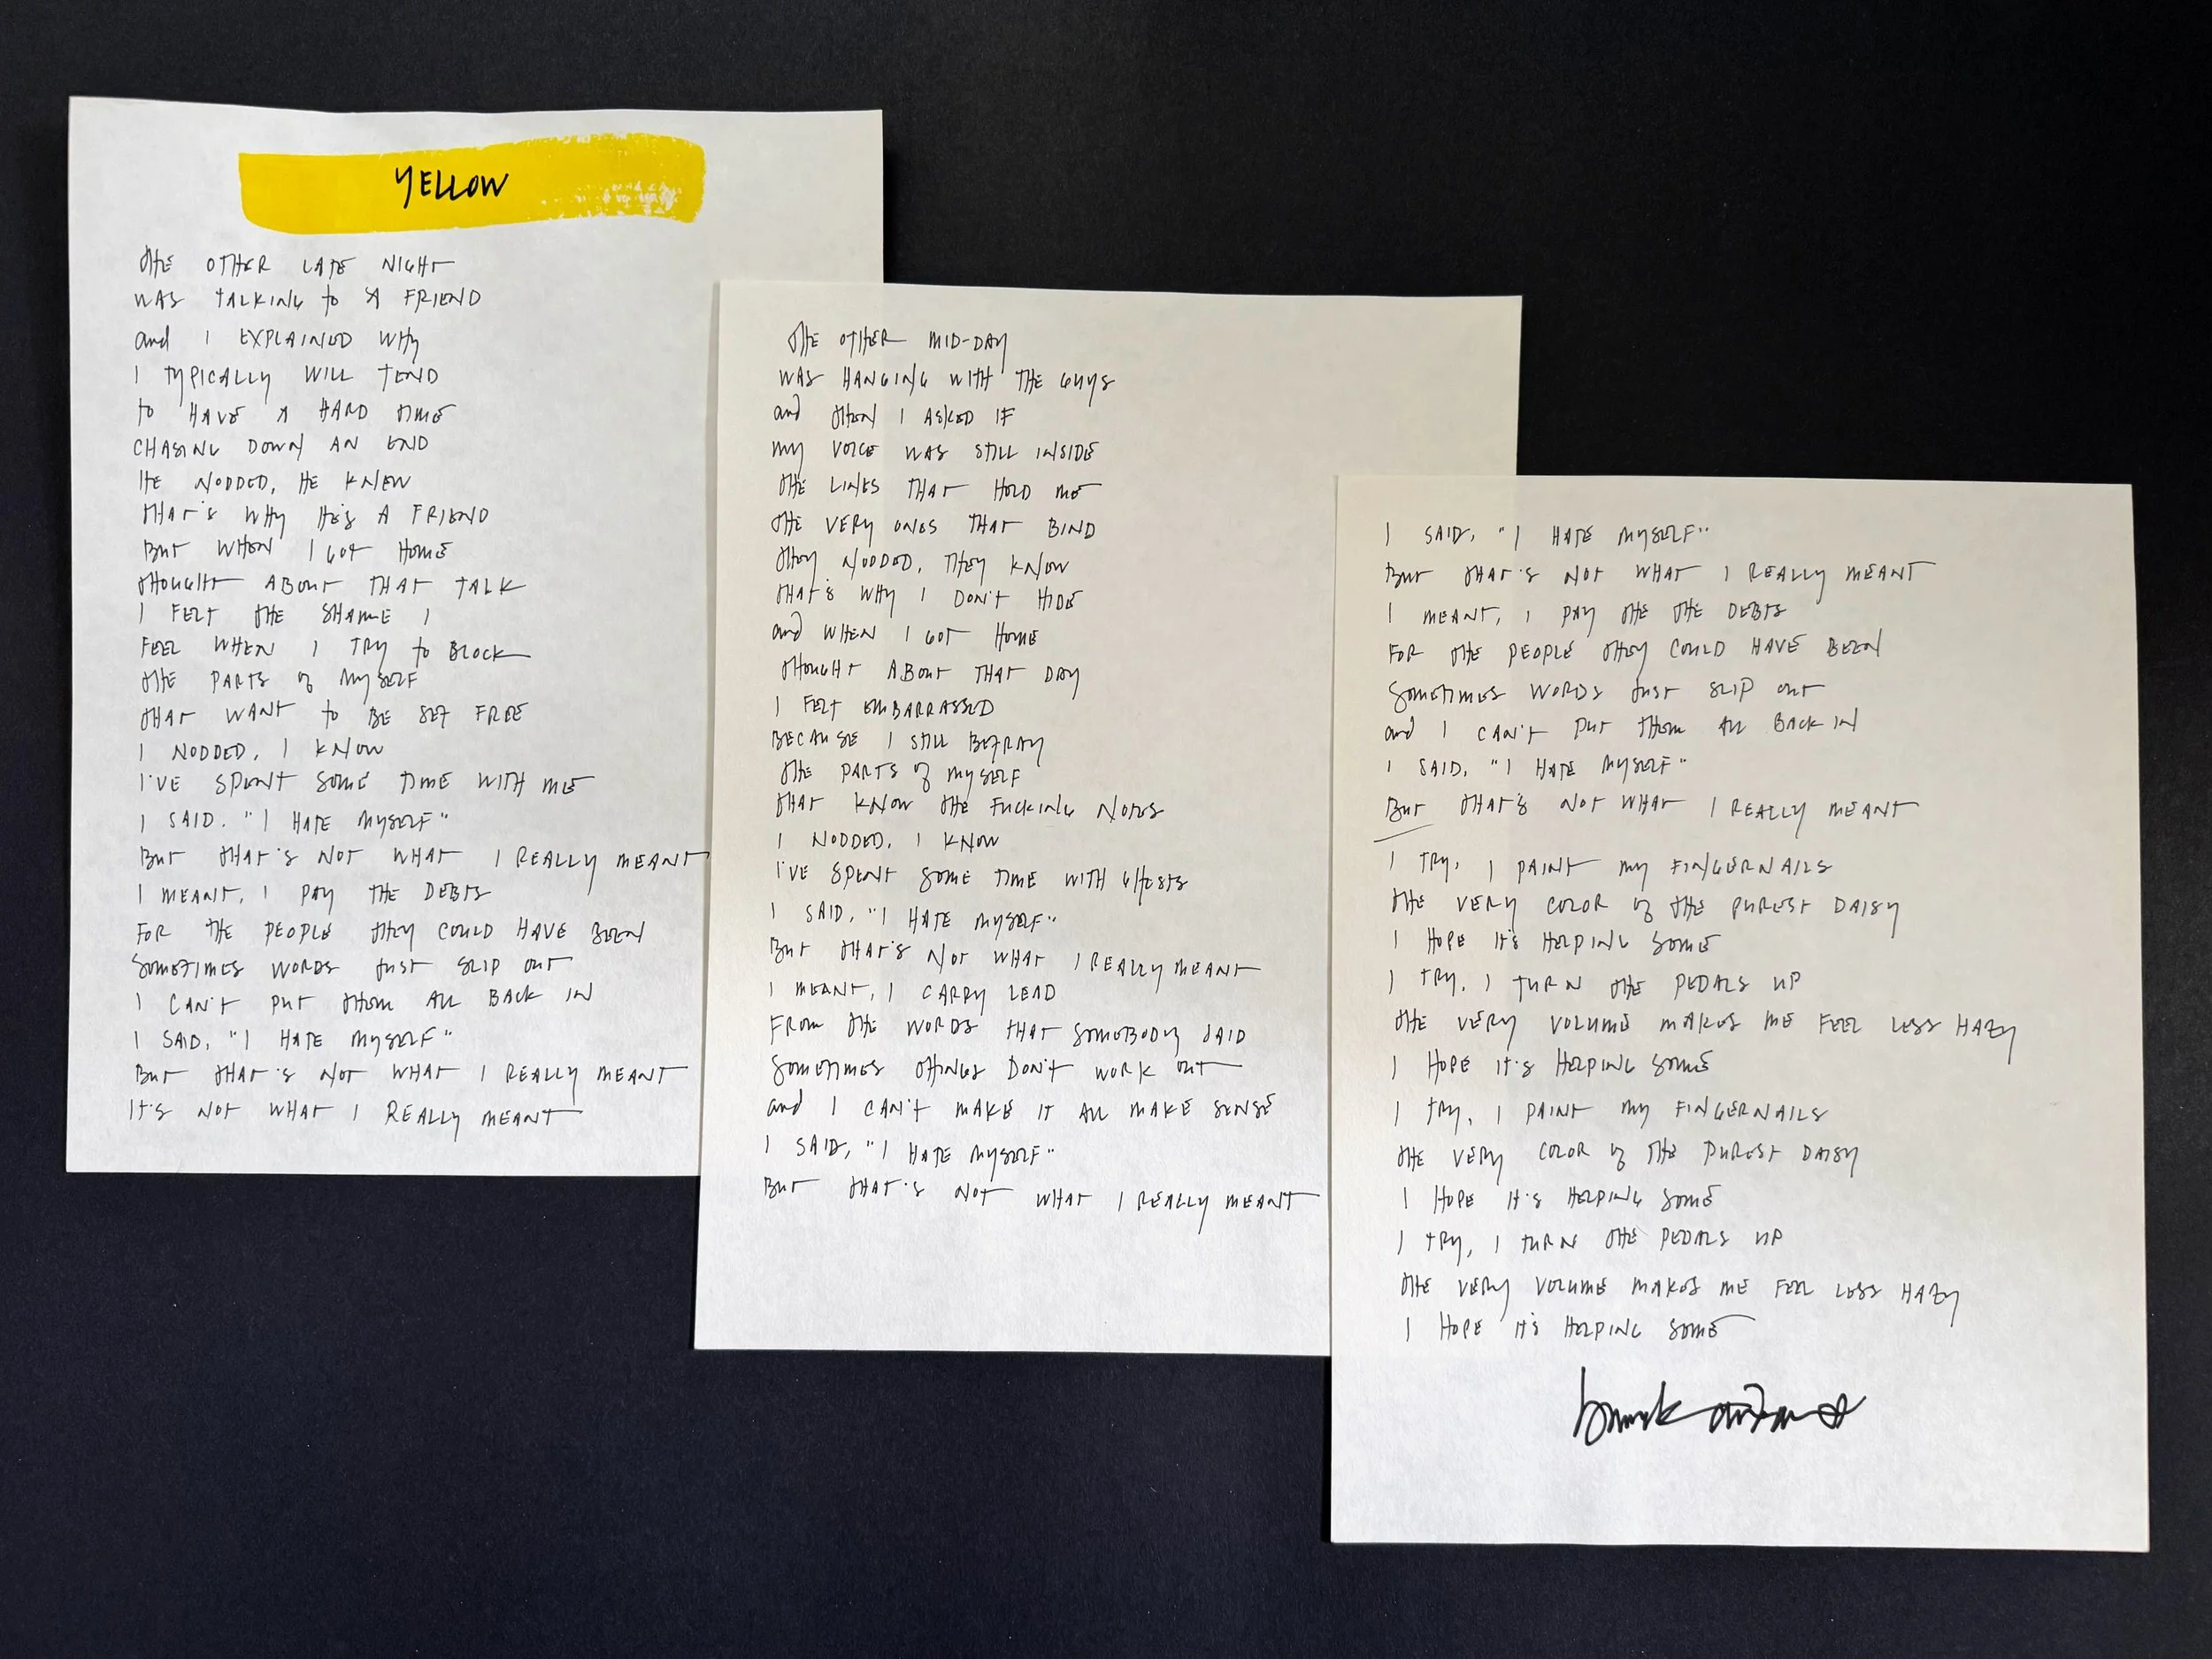 YELLOW
THE OTHER LATE NIGHT
WAS TALKING to A FRIEND
and I EXPLAINED WHY
I TYPICALLY WILL TEND
to HAVE A HARD TIME
CHASING DOWN AN END
HE NODDED, HE KNEW
THAT'S WHY HE'S A FRIEND
BUT WHEN I GOT HOME
THOUGHT ABOUT THAT TALK
I FELT THE SHAME I
FEEL WHEN I TRY to BLOCK
THE PARTS of MYSELF
THAT WANT to BE SET FREE
I NODDED, I KNOW
I'VE SPENT SOME TIME WITH ME
I SAID. "I HATE MYSELF"
BUT THAT'S NOT WHAT I REALLY MEANT
I MEANT, I PAY THE DEBTS
FOR THE PEOPLE THEY COULD HAVE BEEN
SOMETIMES WORDS JUST SLIP OUT
I CAN'T PUT THEM ALL BACK IN
I SAID, "I HATE MYSELF"
BUT THAT'S NOT WHAT I REALLY MEANT
IT'S NOT WHAT I REALLY MEANT
THE OTHER MID-DAY
WAS HANGING WITH THE GUYS
and THEN I ASKED IF
MY VOICE WAS STILL INSIDE
THE LINES THAT HOLD ME
THE VERY ONES THAT BIND
THEY NODDED, THEY KNOW
THAT'S WHY I DON'T HIDE
and WHEN I GOT HOME
THOUGHT ABOUT THAT DAY
I FELT EMBARRASSED
BECAUSE I STILL BETRAY
THE PARTS of MYSELF
THAT KNOW THE FUCKING NOTES
I NODDED, I KNOW
I'VE SPENT SOME TIME WITH GHOSTS
I SAID, "I HATE MYSELF"
BUT THAT'S NOT WHAT I REALLY MEANT
I MEANT, I CARRY LEAD
FROM THE WORDS THAT SOMEBODY SAID
SOMETIMES THINGS DON'T WORK OUT
and I CAN'T MAKE IT ALL MAKE SENSE
I SAID, "I HATE MYSELF"
BUT THAT'S NOT WHAT I REALLY MEANT
I SAID, "I HATE MYSELF"
BUT THAT'S NOT WHAT I REALLY MEANT
I MEANT, I PAY THE THE DEBTS
FOR THE PEOPLE THEY COULD HAVE BEEN
SOMETIMES WORDS JUST SLIP OUT
and I CAN'T PUT THEM ALL BACK IN
I SAID, "I HATE MYSELF"
BUT THAT'S NOT WHAT I REALLY MEANT
I TRY, I PAINT MY FINGERNAILS
THE VERY COLOR of THE PUREST DAISY
I HOPE IT'S HELPING SOME
I TRY, I TURN THE PEDALS UP
THE VERY VOLUME MAKES ME FEEL LESS HAZY
I HOPE IT'S HELPING SOME
I TRY, I PAINT MY FINGERNAILS
THE VERY COLOR of THE PUREST DAISY
I HOPE IT'S HELPING SOME
I TRY, I TURN THE PEDALS UP
THE VERY VOLUME MAKES ME FEEL LESS HAZY
I HOPE IT'S HELPING SOME